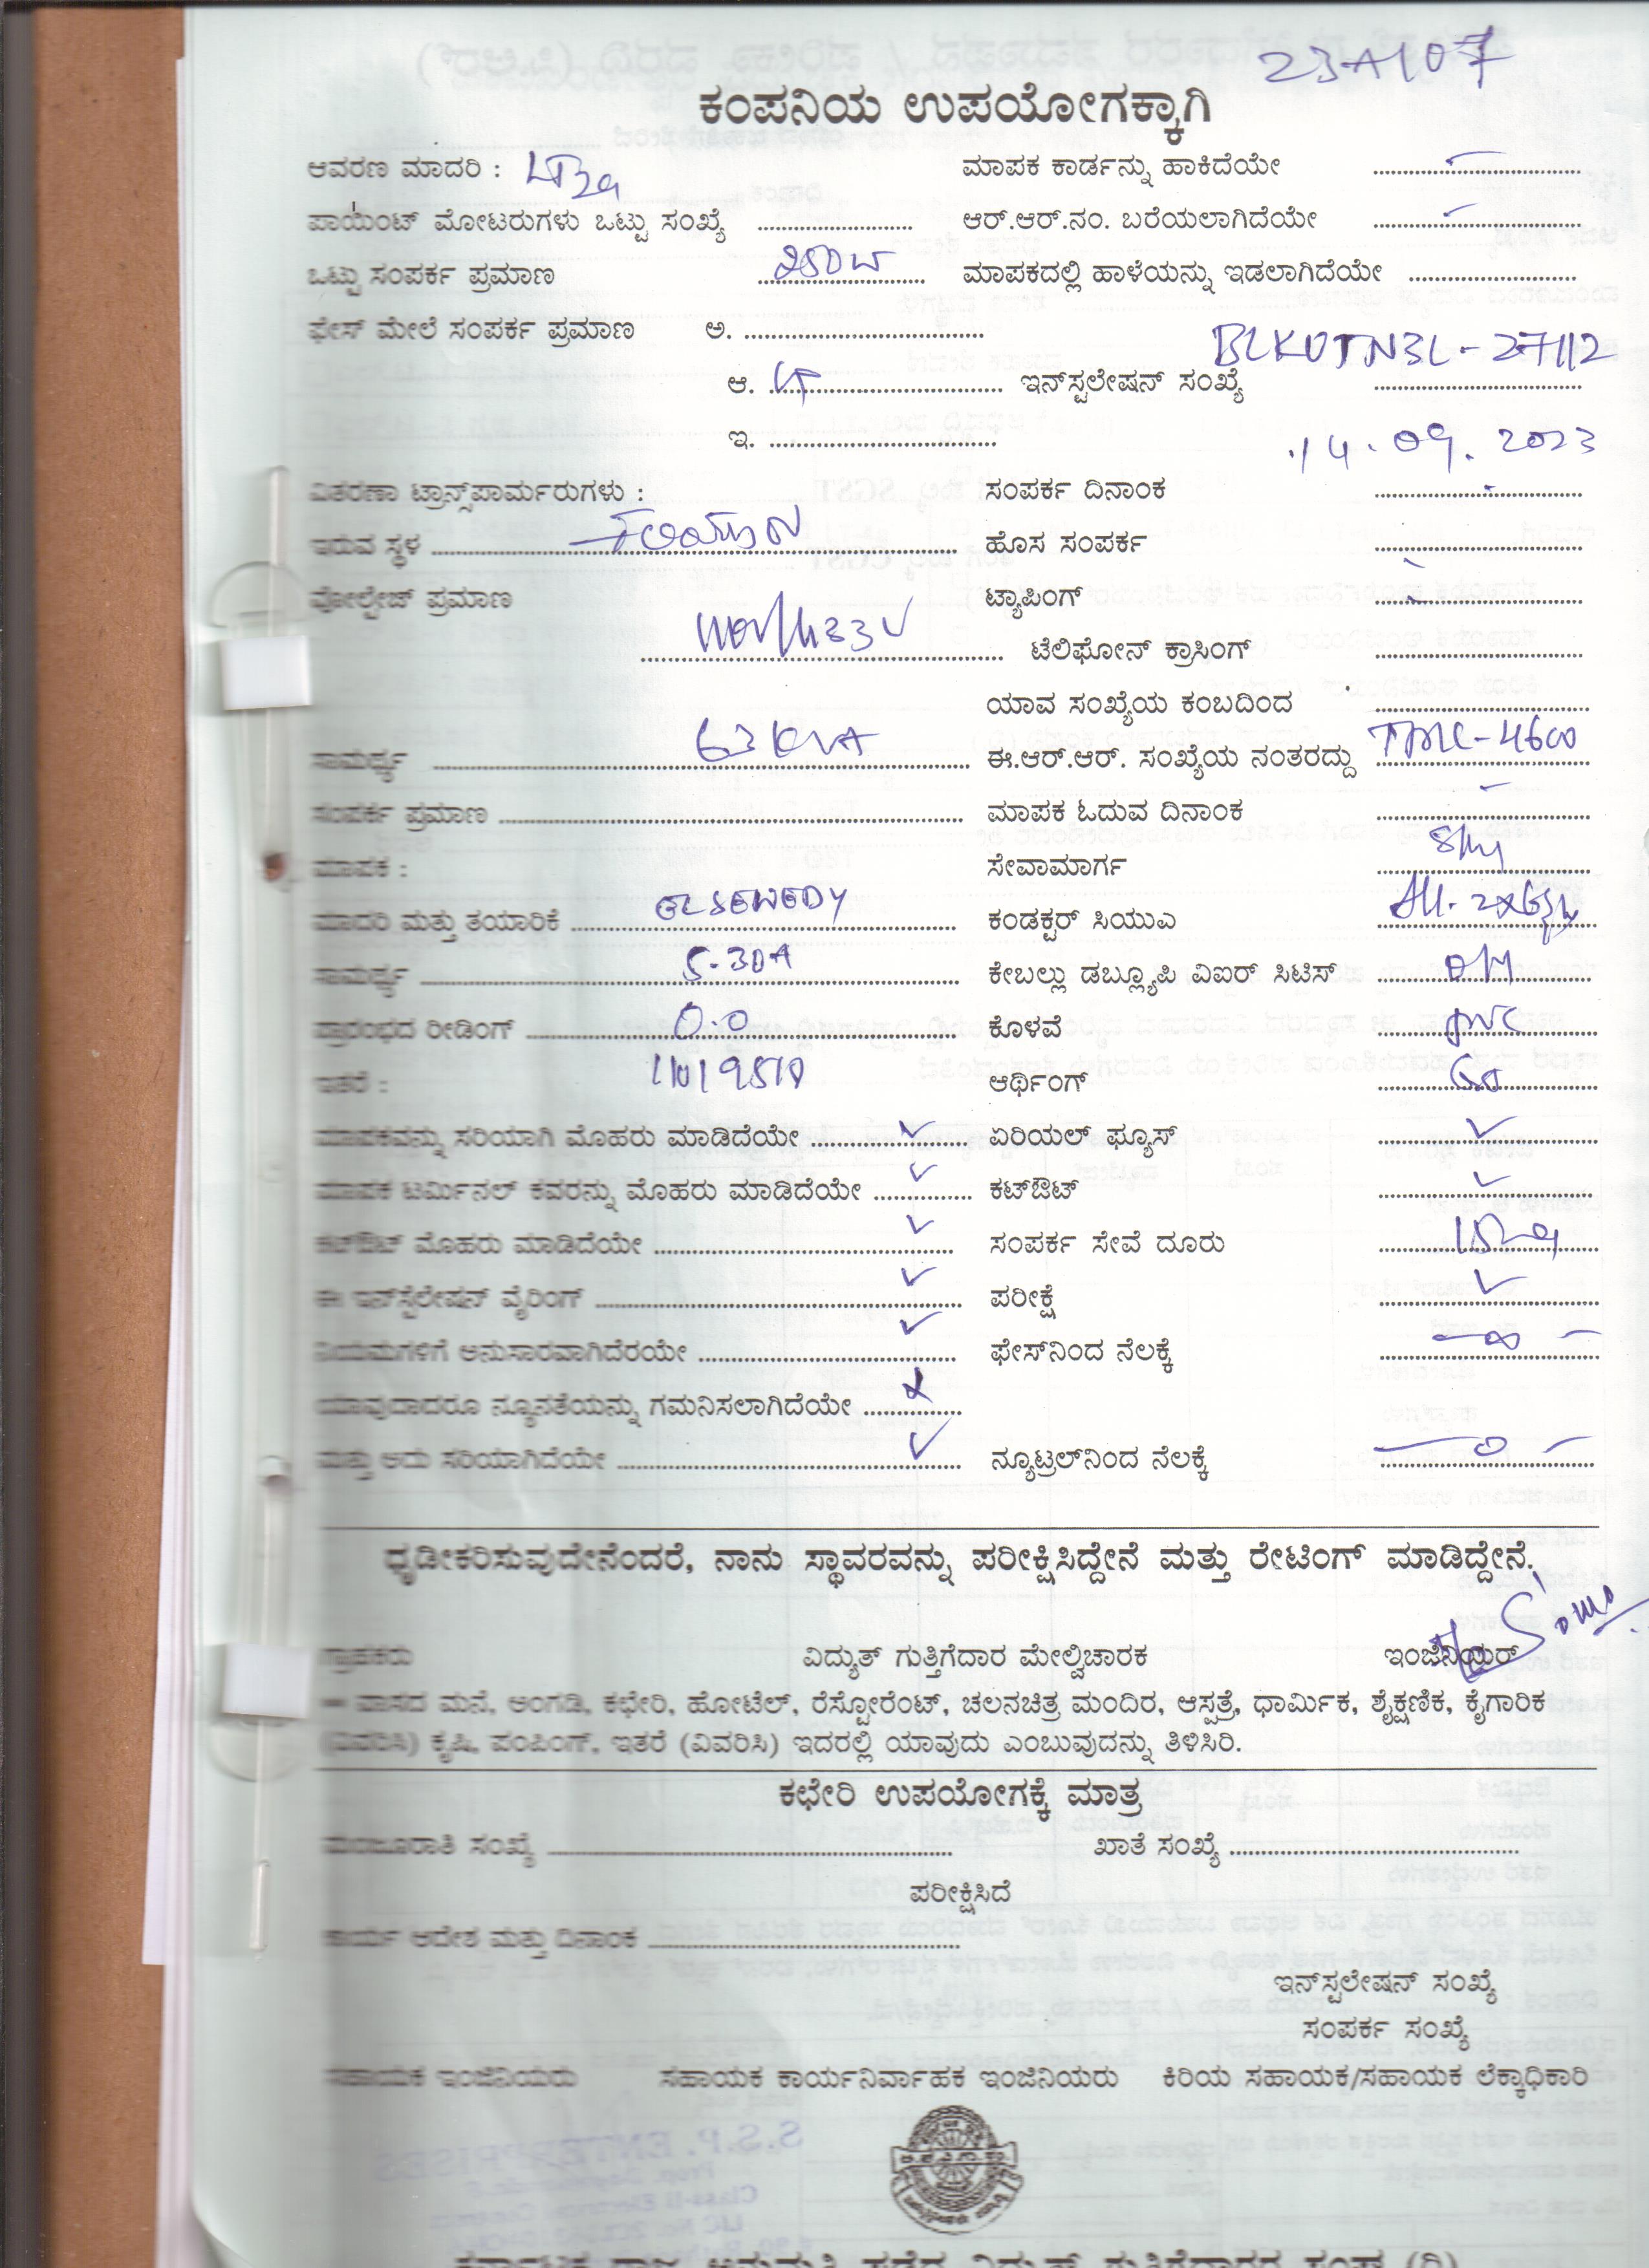 23A107
ಕಂಪನಿಯ ಉಪಯೋಗಕ್ಕಾಗಿ
ಆವರಣ ಮಾದರಿ : LT3a ಮಾಪಕ ಕಾರ್ಡನ್ನು ಹಾಕಿದೆಯೇ
ಪಾಯಿಂಟ್ ಮೋಟರುಗಳು ಒಟ್ಟು ಸಂಖ್ಯೆ ಆರ್.ಆರ್.ನಂ. ಬರೆಯಲಾಗಿದೆಯೇ
ಒಟ್ಟು ಸಂಪರ್ಕ ಪ್ರಮಾಣ 250W ಮಾಪಕದಲ್ಲಿ ಹಾಳೆಯನ್ನು ಇಡಲಾಗಿದೆಯೇ
ಫೇಸ್ ಮೇಲೆ ಸಂಪರ್ಕ ಪ್ರಮಾಣ ಅ.
ಆ. ಇನ್‌ಸ್ಟಲೇಷನ್ ಸಂಖ್ಯೆ BLKUTN3L-27112
ಇ.
ವಿತರಣಾ ಟ್ರಾನ್ಸ್‌ಪಾರ್ಮರುಗಳು : ಸಂಪರ್ಕ ದಿನಾಂಕ 14.09.2023
ಇರುವ ಸ್ಥಳ ಹೊಸ ಸಂಪರ್ಕ
ವೋಲ್ಟೇಜ್ ಪ್ರಮಾಣ ಟ್ಯಾಪಿಂಗ್
ಟೆಲಿಫೋನ್ ಕ್ರಾಸಿಂಗ್
ಯಾವ ಸಂಖ್ಯೆಯ ಕಂಬದಿಂದ
ಸಾಮರ್ಥ್ಯ 63 KVA ಈ.ಆರ್.ಆರ್. ಸಂಖ್ಯೆಯ ನಂತರದ್ದು TML-4600
ಸಂಪರ್ಕ ಪ್ರಮಾಣ ಮಾಪಕ ಓದುವ ದಿನಾಂಕ
ಮಾಪಕ : ಸೇವಾಮಾರ್ಗ
ಮಾದರಿ ಮತ್ತು ತಯಾರಿಕೆ ELSEWEDY ಕಂಡಕ್ಟರ್ ಸಿಯುಎ
ಸಾಮರ್ಥ್ಯ 5-30A ಕೇಬಲ್ಲು ಡಬ್ಲ್ಯೂಪಿ ವಿಐರ್ ಸಿಟಿಸ್ OM
ಪ್ರಾರಂಭದ ರೀಡಿಂಗ್ 0.0 ಕೊಳವೆ PVC
ಇತರೆ : ಆರ್ಥಿಂಗ್
ಮಾಪಕವನ್ನು ಸರಿಯಾಗಿ ಮೊಹರು ಮಾಡಿದೆಯೇ ✓ ಏರಿಯಲ್ ಫ್ಯೂಸ್ ✓
ಮಾಪಕ ಟರ್ಮಿನಲ್ ಕವರನ್ನು ಮೊಹರು ಮಾಡಿದೆಯೇ ✓ ಕಟ್‌ಔಟ್ ✓
ಕಟ್‌ಔಟ್ ಮೊಹರು ಮಾಡಿದೆಯೇ ✓ ಸಂಪರ್ಕ ಸೇವೆ ದೂರು
ಈ ಇನ್‌ಸ್ಟಲೇಷನ್ ವೈರಿಂಗ್ ✓ ಪರೀಕ್ಷೆ ✓
ನಿಯಮಗಳಿಗೆ ಅನುಸಾರವಾಗಿದೆರಯೇ ✓ ಫೇಸ್‌ನಿಂದ ನೆಲಕ್ಕೆ
ಯಾವುದಾದರೂ ನ್ಯೂನತೆಯನ್ನು ಗಮನಿಸಲಾಗಿದೆಯೇ
ಮತ್ತು ಅದು ಸರಿಯಾಗಿದೆಯೇ ✓ ನ್ಯೂಟ್ರಲ್‌ನಿಂದ ನೆಲಕ್ಕೆ
ಧೃಡೀಕರಿಸುವುದೇನೆಂದರೆ, ನಾನು ಸ್ಥಾವರವನ್ನು ಪರೀಕ್ಷಿಸಿದ್ದೇನೆ ಮತ್ತು ರೇಟಿಂಗ್ ಮಾಡಿದ್ದೇನೆ.
ಗ್ರಾಹಕರು ವಿದ್ಯುತ್ ಗುತ್ತಿಗೆದಾರ ಮೇಲ್ವಿಚಾರಕ ಇಂಜಿನಿಯರ್
ವಾಸದ ಮನೆ, ಅಂಗಡಿ, ಕಛೇರಿ, ಹೋಟೆಲ್, ರೆಸ್ಟೋರೆಂಟ್, ಚಲನಚಿತ್ರ ಮಂದಿರ, ಆಸ್ಪತ್ರೆ, ಧಾರ್ಮಿಕ, ಶೈಕ್ಷಣಿಕ, ಕೈಗಾರಿಕ
(ವಿವರಿಸಿ) ಕೃಷಿ, ಪಂಪಿಂಗ್, ಇತರೆ (ವಿವರಿಸಿ) ಇದರಲ್ಲಿ ಯಾವುದು ಎಂಬುವುದನ್ನು ತಿಳಿಸಿರಿ.
ಕಛೇರಿ ಉಪಯೋಗಕ್ಕೆ ಮಾತ್ರ
ಮಂಜೂರಾತಿ ಸಂಖ್ಯೆ ಖಾತೆ ಸಂಖ್ಯೆ
ಪರೀಕ್ಷಿಸಿದೆ
ಕಾರ್ಯ ಆದೇಶ ಮತ್ತು ದಿನಾಂಕ
ಇನ್‌ಸ್ಟಲೇಷನ್ ಸಂಖ್ಯೆ
ಸಂಪರ್ಕ ಸಂಖ್ಯೆ
ಸಹಾಯಕ ಇಂಜಿನಿಯರು ಸಹಾಯಕ ಕಾರ್ಯನಿರ್ವಾಹಕ ಇಂಜಿನಿಯರು ಕಿರಿಯ ಸಹಾಯಕ/ಸಹಾಯಕ ಲೆಕ್ಕಾಧಿಕಾರಿ